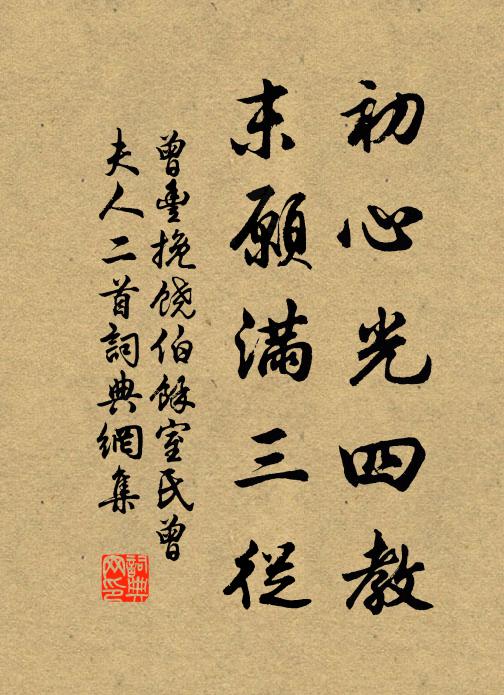 初心光四教
末願滿三從
曾豐挽饒伯餘室氏曾
夫人二首詞典網集
詞典
网印